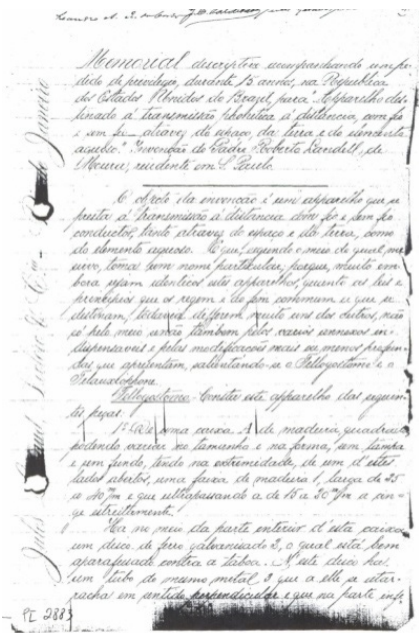 Memorial descriptivo acompanhando um pe-
dido de privilegio, durante 15 annos, na Republica
dos Estados Unidos do Brazil, para "Apparelho des-
tinado á transmissão phonetica á distancia, com fio
e sem fio atravez do espaço, da terra e do elemento
aquoso". Invenção do Padre Roberto Landell, de
Moura, residente em S. Paulo.
O objecto da invenção é um apparelho que se
presta á transmissão á distancia com fio e sem fio
conductor, tanto atravez do espaço e da terra, como
do elemento aquoso. E que, segundo o meio de qual me
sirvo, toma um nome particular, porque, muito em-
bora sejam identicos estes apparelhos, quanto as leis e
principios que os regem e do fim commum a que se
destinam, todavia differem muito uns dos outros, não
só pelo meio senão tambem pelos varios annexos in-
dispensaveis e pelas modificações mais ou menos profun-
das que apresentam, salientando-se o
Consta este apparelho das seguin-
tes peças:
1º De uma caixa A de madeira, quadrada
podendo variar no tamanho e na forma, sem tampa
e sem fundo, tendo na extremidade, de um d'estes
lados abertos, uma faixa de madeira 1, larga de 25
a 40 m/m e que ultrapassando a de 15 a 20 m/m a
estreitamente.
Ha no meio da parte anterior d'esta caixa
um disco de ferro galvanisado 2, o qual está bem
aparafusado contra a taboa. N'este disco ha
um tubo do mesmo metal 3 que a elle se atar-
racha em sentido perpendicular e que na parte infe
PI 2883